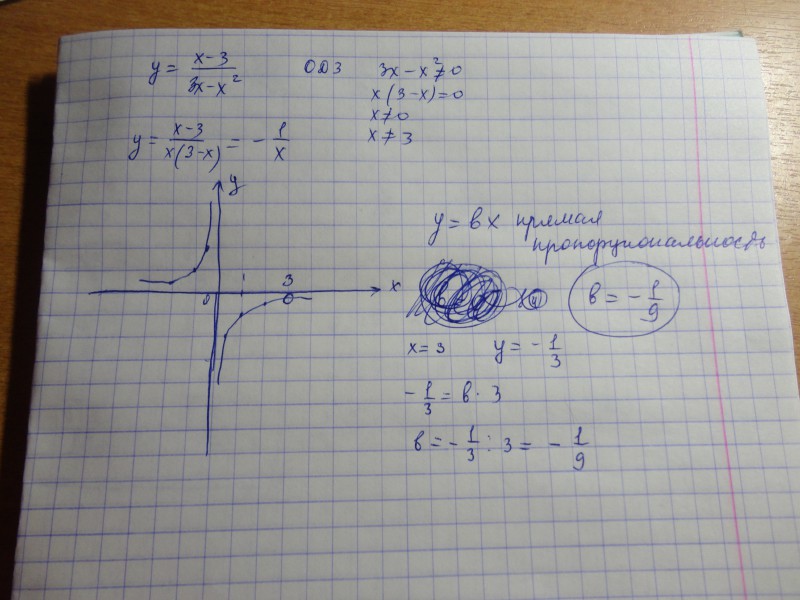 y = (x-3)/(3x-x²)
ОДЗ
3x-x²≠0
x(3-x)=0
x≠0
x≠3
y = (x-3)/(x(3-x)) = -1/x
y
x
0
1
3
y = вx прямая
пропорциональность
в = -1/9
x=3 y = -1/3
-1/3 = в·3
в = -1/3 : 3 = -1/9